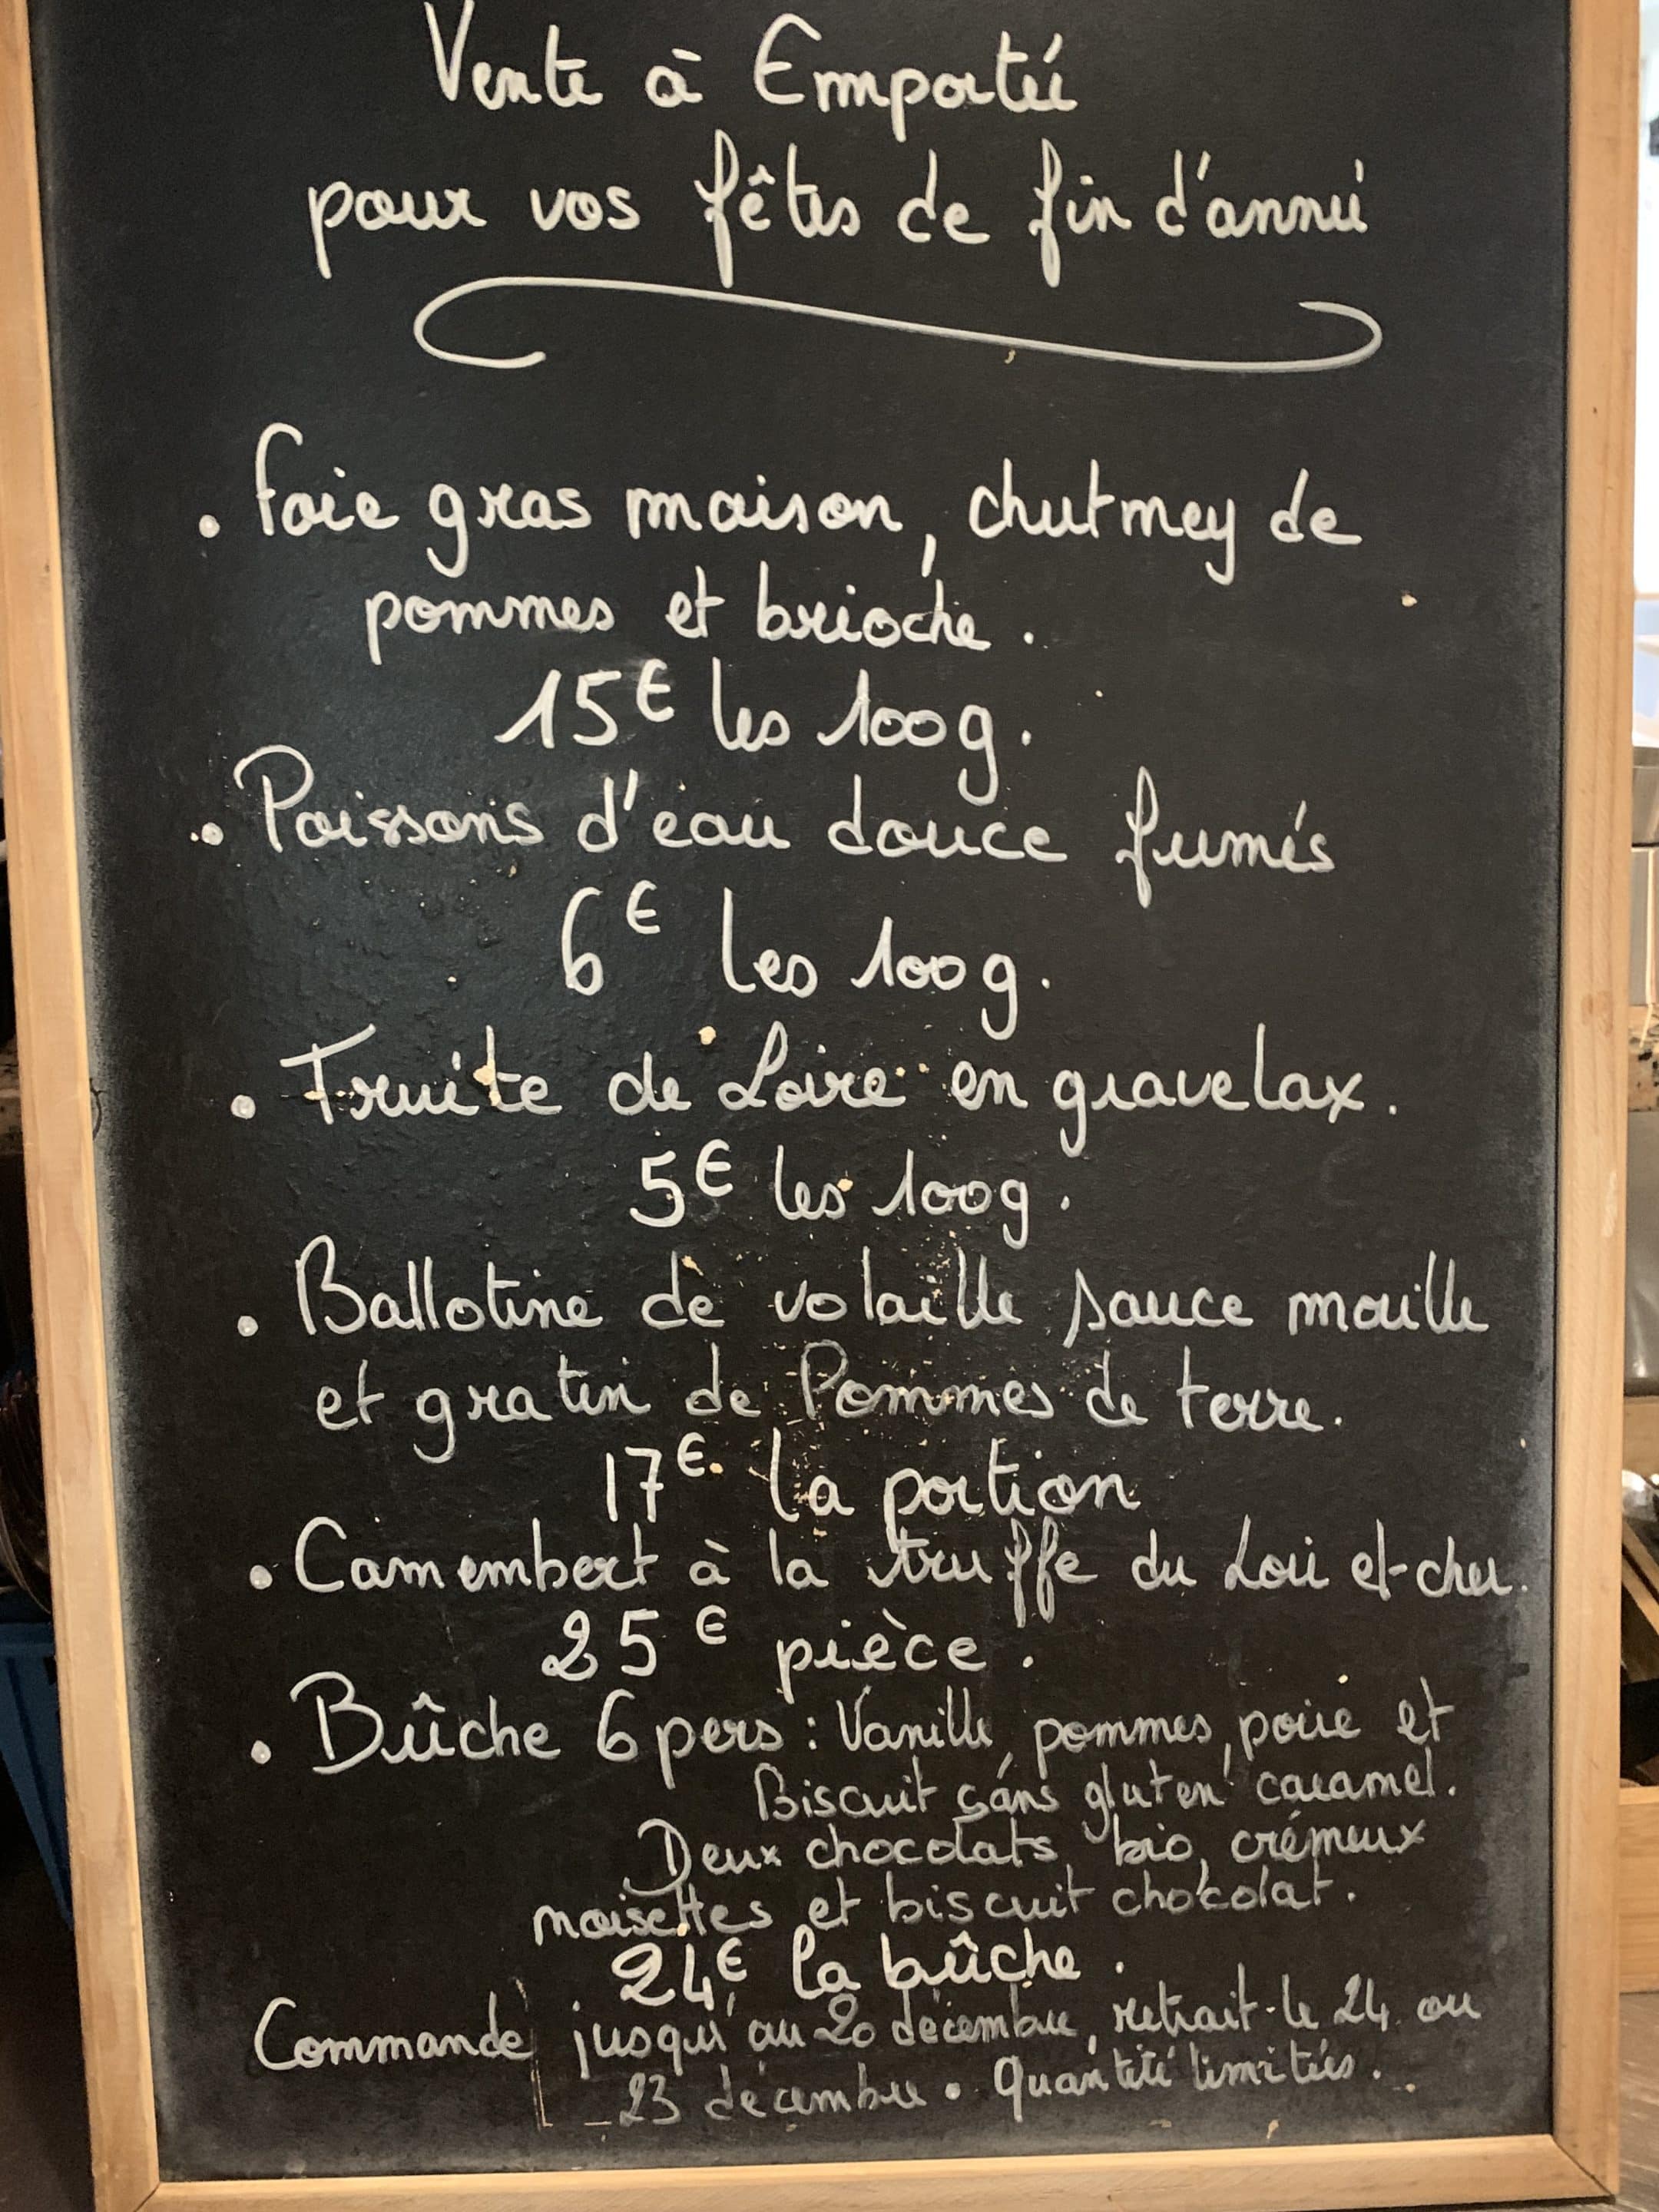 Vente à Emportée
pour vos fêtes de fin d'année
• Foie gras maison, chutney de
pommes et brioche.
15€ les 100g.
• Poissons d'eau douce fumés
6€ les 100g.
• Truite de Loire en gravelax.
5€ les 100g.
• Ballotine de volaille sauce morille
et gratin de Pommes de terre.
17€ la portion
• Camembert à la truffe du Loir et-cher.
25€ pièce.
• Bûche 6 pers : Vanille, pommes, poire et
Biscuit sans gluten caramel.
Deux chocolats bio, crémeux
noisettes et biscuit chocolat.
24€ la bûche.
Commande jusqu'au 20 décembre, retrait le 24 ou
23 décembre. Quantité limitées.